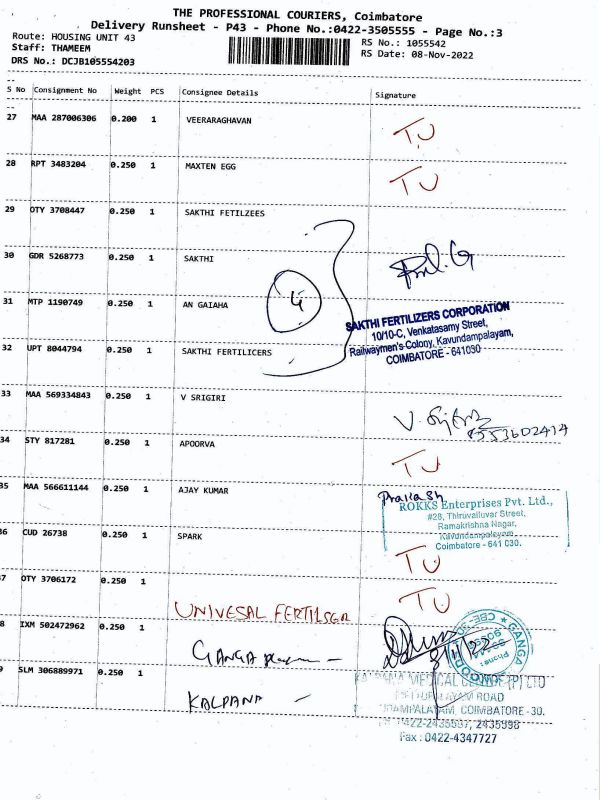 THE PROFESSIONAL COURIERS, Coimbatore
Delivery Runsheet - P43 - Phone No.:0422-3505555 - Page No.:3
Route: HOUSING UNIT 43
Staff: THAMEEM
DRS No.: DCJB105554203
RS No.: 1055542
RS Date: 08-Nov-2022
S No Consignment No Weight PCS Consignee Details Signature
27 MAA 287006306 0.200 1 VEERARAGHAVAN TU
28 RPT 3483204 0.250 1 MAXTEN EGG TU
29 OTY 3708447 0.250 1 SAKTHI FETILZEES
30 GDR 5268773 0.250 1 SAKTHI
31 MTP 1190749 0.250 1 AN GAIAHA 4
SAKTHI FERTILIZERS CORPORATION
10/10-C, Venkatasamy Street,
Railwaymen's Colony, Kavundampalayam,
COIMBATORE - 641030
32 UPT 8044794 0.250 1 SAKTHI FERTILICERS
33 MAA 569334843 0.250 1 V SRIGIRI
34 STY 817281 0.250 1 APOORVA TU
35 MAA 566611144 0.250 1 AJAY KUMAR Prakash
ROKKS Enterprises Pvt. Ltd.,
#28, Thiruvalluvar Street,
Ramakrishna Nagar,
Kavundampalayam,
Coimbatore - 641 030.
36 CUD 26738 0.250 1 SPARK TU
7 OTY 3706172 0.250 1 TU
UNIVESAL FERTILSER
8 IXM 502472962 0.250 1
GANGA
9 SLM 306889971 0.250 1
KALPANA
KALPANA MEDICAL CENTRE (P) LTD
ROAD
COIMBATORE - 30.
0422-2435597, 2435598
Fax : 0422-4347727